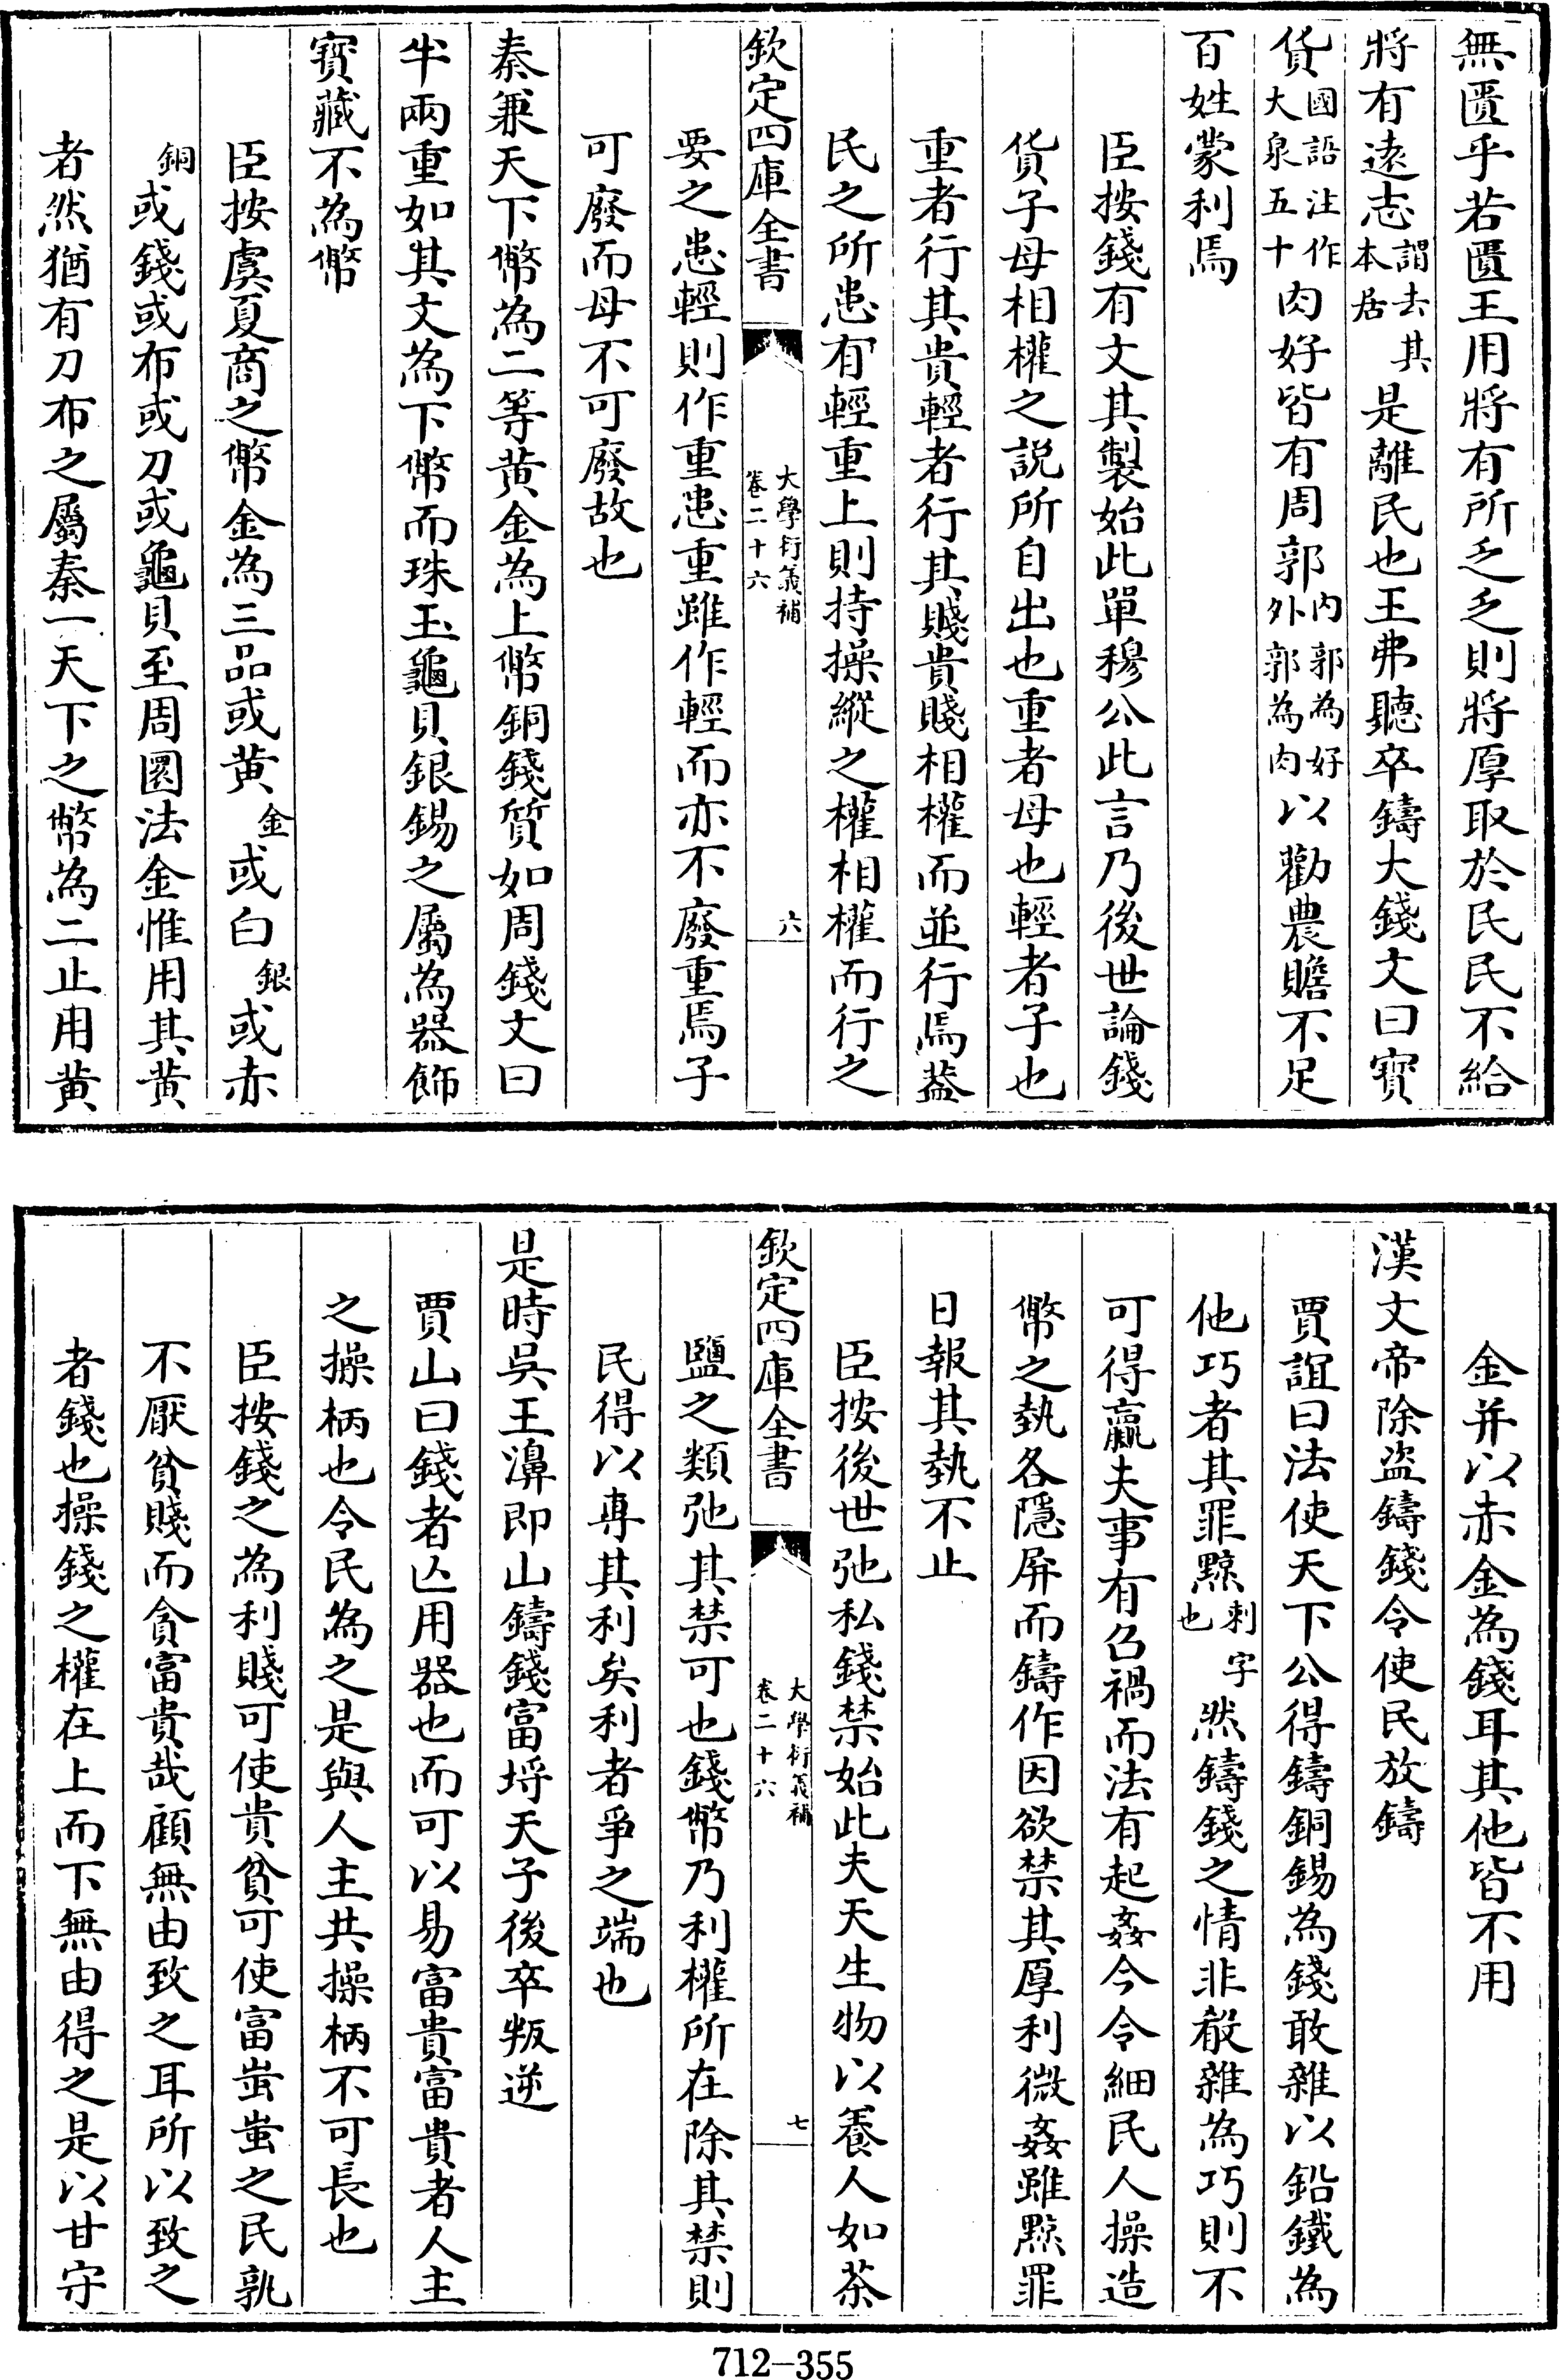 無匱乎若匱王用將有所乏乏則將厚取於民民不給
將有逺志謂去其本居是離民也王弗聽卒鑄大錢文曰寳
貨國語注作大泉五十肉好皆有周郭内郭為好外郭為肉以勸農贍不足
百姓蒙利焉
臣按錢有文其製始此單穆公此言乃後世論錢
貨子母相權之説所自出也重者母也輕者子也
重者行其貴輕者行其賤貴賤相權而並行焉葢
民之所患有輕重上則持操縱之權相權而行之
欽定四庫全書
大學衍義補
卷二十六
六
要之患輕則作重患重雖作輕而亦不廢重焉子
可廢而母不可廢故也
秦兼天下幣為二等黄金為上幣銅錢質如周錢文曰
半兩重如其文為下幣而珠玉龜貝銀錫之屬為器飾
寳藏不為幣
臣按虞夏商之幣金為三品或黄金或白銀或赤
銅或錢或布或刀或龜貝至周圜法金惟用其黄
者然猶有刀布之屬秦一天下之幣為二止用黄
金并以赤金為錢耳其他皆不用
漢文帝除盜鑄錢令使民放鑄
賈誼曰法使天下公得鑄銅錫為錢敢雜以鉛鐵為
他巧者其罪黥刺字也然鑄錢之情非殽雜為巧則不
可得贏夫事有召禍而法有起姦今令細民人操造
幣之埶各隱屏而鑄作因欲禁其厚利微姦雖黥罪
日報其埶不止
臣按後世弛私錢禁始此夫天生物以養人如茶
欽定四庫全書
大學衍義補
卷二十六
七
鹽之類弛其禁可也錢幣乃利權所在除其禁則
民得以專其利矣利者爭之端也
是時吳王濞即山鑄錢富埒天子後卒叛逆
賈山曰錢者亾用器也而可以易富貴富貴者人主
之操柄也令民為之是與人主共操柄不可長也
臣按錢之為利賤可使貴貧可使富蚩蚩之民孰
不厭貧賤而貪富貴哉顧無由致之耳所以致之
者錢也操錢之權在上而下無由得之是以甘守
712-355